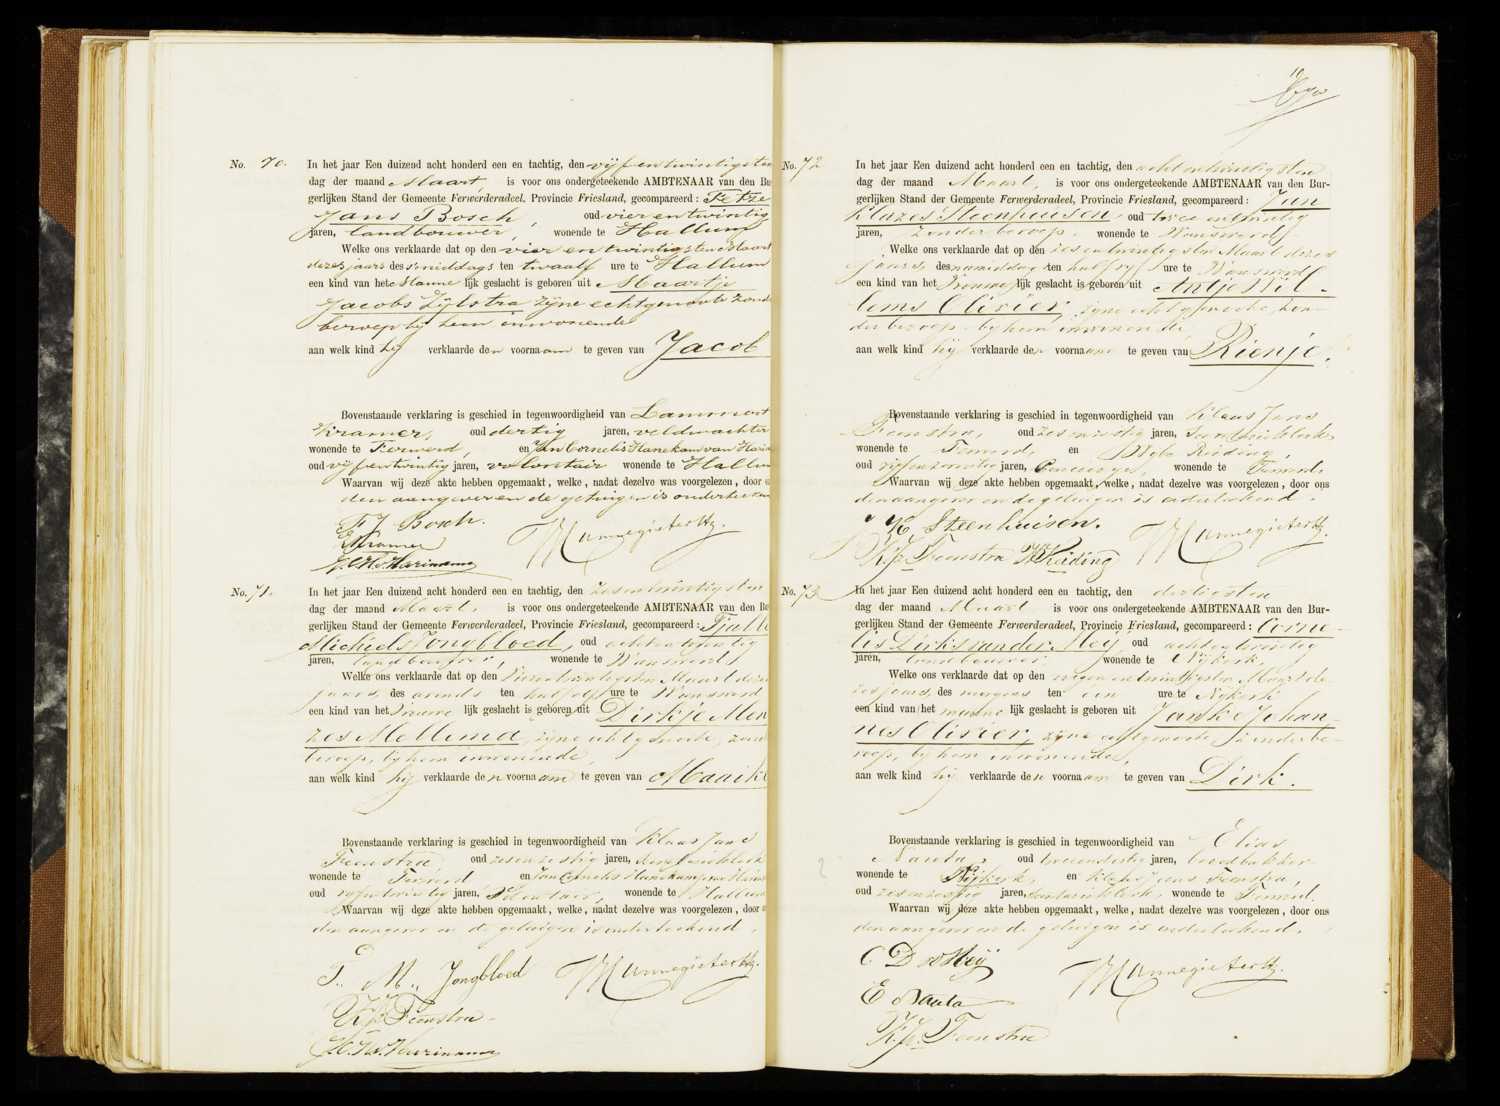 No. 70. In het jaar Een duizend acht honderd een en tachtig, den vijfentwintigsten
dag der maand Maart, is voor ons ondergeteekende AMBTENAAR van den Bu
gerlijken Stand der Gemeente Ferwerderadeel, Provincie Friesland, gecompareerd: Fetze
Jans Bosch, oud vier en twintig
jaren, landbouwer, wonende te Hallum
Welke ons verklaarde dat op den vier en twintigsten Maart
dezes jaars des middags ten twaalf ure te Hallum
een kind van het Manne lijk geslacht is geboren uit Maartje
Jacobs Zijlstra zijne echtgenoote zonde
beroep bij hem inwonende
aan welk kind hij verklaarde den voornaam te geven van Jacob
Bovenstaande verklaring is geschied in tegenwoordigheid van Lammert
Kramer, oud dertig jaren, veldwachter
wonende te Ferwerd, en Jan Cornelis Hanekamp van Harin
oud vijfentwintig jaren, volontair wonende te Hallum
Waarvan wij deze akte hebben opgemaakt, welke, nadat dezelve was voorgelezen, door
den aangever en de getuigen is onderteeken
F J Bosch.
L Kramer
No. 71. In het jaar Een duizend acht honderd een en tachtig, den zesentwintigsten
dag der maand Maart, is voor ons ondergeteekende AMBTENAAR van den Bu
gerlijken Stand der Gemeente Ferwerderadeel, Provincie Friesland, gecompareerd: Tjalle
Michiels Jongbloed, oud achtentwintig
jaren, landbouwer, wonende te Wanswerd
Welke ons verklaarde dat op den vierentwintigsten Maart dezes
jaars, des avonds ten half elf ure te Wanswerd
een kind van het vrouwe lijk geslacht is geboren uit Dirkje Men
zes Mellema, zijne echtgenoote, zond
beroep, bij hem inwonende,
aan welk kind hij verklaarde den voornaam te geven van Maaike
Bovenstaande verklaring is geschied in tegenwoordigheid van Klaas Jans
Feenstra oud zesenzestig jaren,
wonende te Ferwerd en Jan Cornelis Hanekamp van Harin
oud vijfentwintig jaren, volontair, wonende te Hallum
Waarvan wij deze akte hebben opgemaakt, welke, nadat dezelve was voorgelezen, door
den aangever en de getuigen is onderteekend.
T.. M.. Jongbloed
K. J. Feenstra
No. 72 In het jaar Een duizend acht honderd een en tachtig, den achtentwintigsten
dag der maand Maart, is voor ons ondergeteekende AMBTENAAR van den Bur-
gerlijken Stand der Gemeente Ferwerderadeel, Provincie Friesland, gecompareerd: Jan
Klazes Steenhuisen, oud twee en twintig
jaren, zonder beroep, wonende te Wanswerd
Welke ons verklaarde dat op den zesentwintigsten Maart dezes
jaars, des namiddag ten half vijf ure te Wanswerd
een kind van het Vrouwe lijk geslacht is geboren uit Antje Wil-
lems Olivier, zijne echtgenoote, zon-
der beroep, bij hem inwonende
aan welk kind hij verklaarde den voornaam te geven van Rienje.
Bovenstaande verklaring is geschied in tegenwoordigheid van Klaas Jans
Feenstra, oud zesenzestig jaren, secretarieklerk,
wonende te Ferwerd, en Wybe Reiding,
oud jaren, Concierge, wonende te Ferwerd,
Waarvan wij deze akte hebben opgemaakt, welke, nadat dezelve was voorgelezen, door ons
den aangever en de getuigen is onderteekend.
J K Steenhuisen.
K. J. Feenstra W Reiding
No. 73 In het jaar Een duizend acht honderd een en tachtig, den dertigsten
dag der maand Maart is voor ons ondergeteekende AMBTENAAR van den Bur-
gerlijken Stand der Gemeente Ferwerderadeel, Provincie Friesland, gecompareerd: Corne-
lis Dirks van der Meij, oud achtentwintig
jaren, landbouwer wonende te Nijkerk,
Welke ons verklaarde dat op den negenentwintigsten Maart de-
zes jaars, des morgens ten een ure te Nijkerk
een kind van het manne lijk geslacht is geboren uit Janke Johan-
nes Olivier, zijne echtgenoote, zonder be-
roep, bij hem inwonende,
aan welk kind hij verklaarde den voornaam te geven van Dirk.
Bovenstaande verklaring is geschied in tegenwoordigheid van Elias
Nauta, oud tweeendertig jaren, broodbakker
wonende te Nijkerk, en Klaas Jans Feenstra,
oud zesenzestig jaren, secretarieklerk, wonende te Ferwerd.
Waarvan wij deze akte hebben opgemaakt, welke, nadat dezelve was voorgelezen, door ons
den aangever en de getuigen is onderteekend.
C D vd Meij
E Nauta
K. J. Feenstra